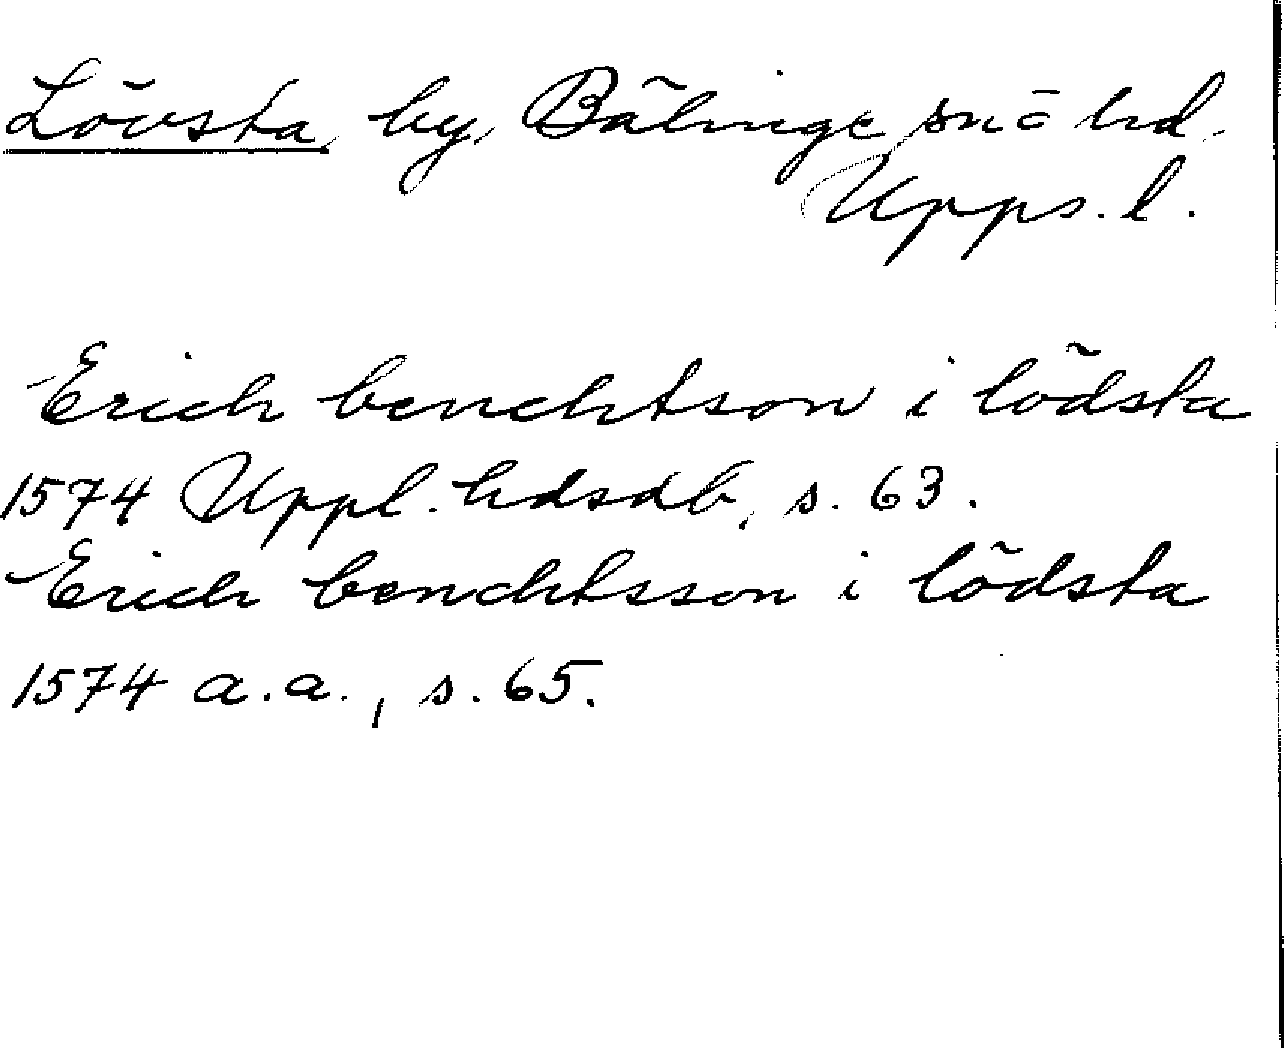 Lövsta, by, Bälinge sn = hd.
Upps. l.
Erich benchtson i lödsta
1574 Uppl. hdsdb, s. 63.
Erich benchtsson i lödsta
1574 a.a., s. 65.